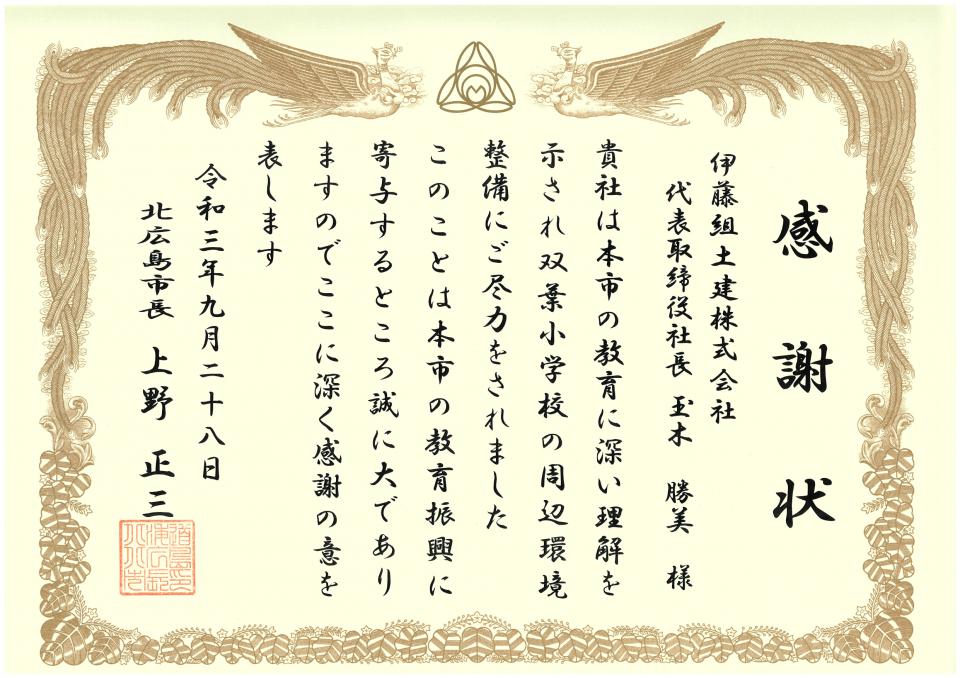 感謝状
伊藤組土建株式会社
代表取締役社長 玉木 勝美 様
貴社は本市の教育に深い理解を
示され双葉小学校の周辺環境
整備にご尽力をされました
このことは本市の教育振興に
寄与するところ誠に大であり
ますのでここに深く感謝の意を
表します
令和三年九月二十八日
北広島市長 上野 正三